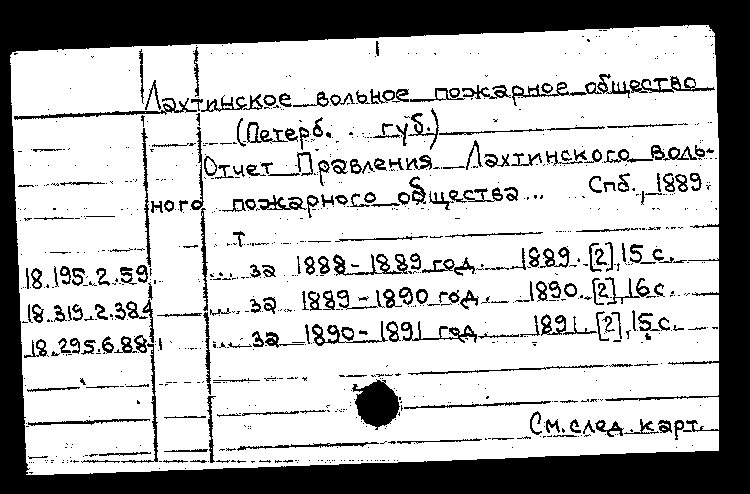 Лахтинское вольное пожарное общество
(Петерб. губ.)
Отчет Правления Лахтинского воль-
ного пожарного общества... Спб., 1889.
т
18.195.2.59 ... за 1888-1889 год. 1889. [2], 15 с.
18.319.2.384 ... за 1889-1890 год. 1890. [2], 16 с.
18.295.6.88 ... за 1890-1891 год. 1891. [2], 15 с.
См. след. карт.